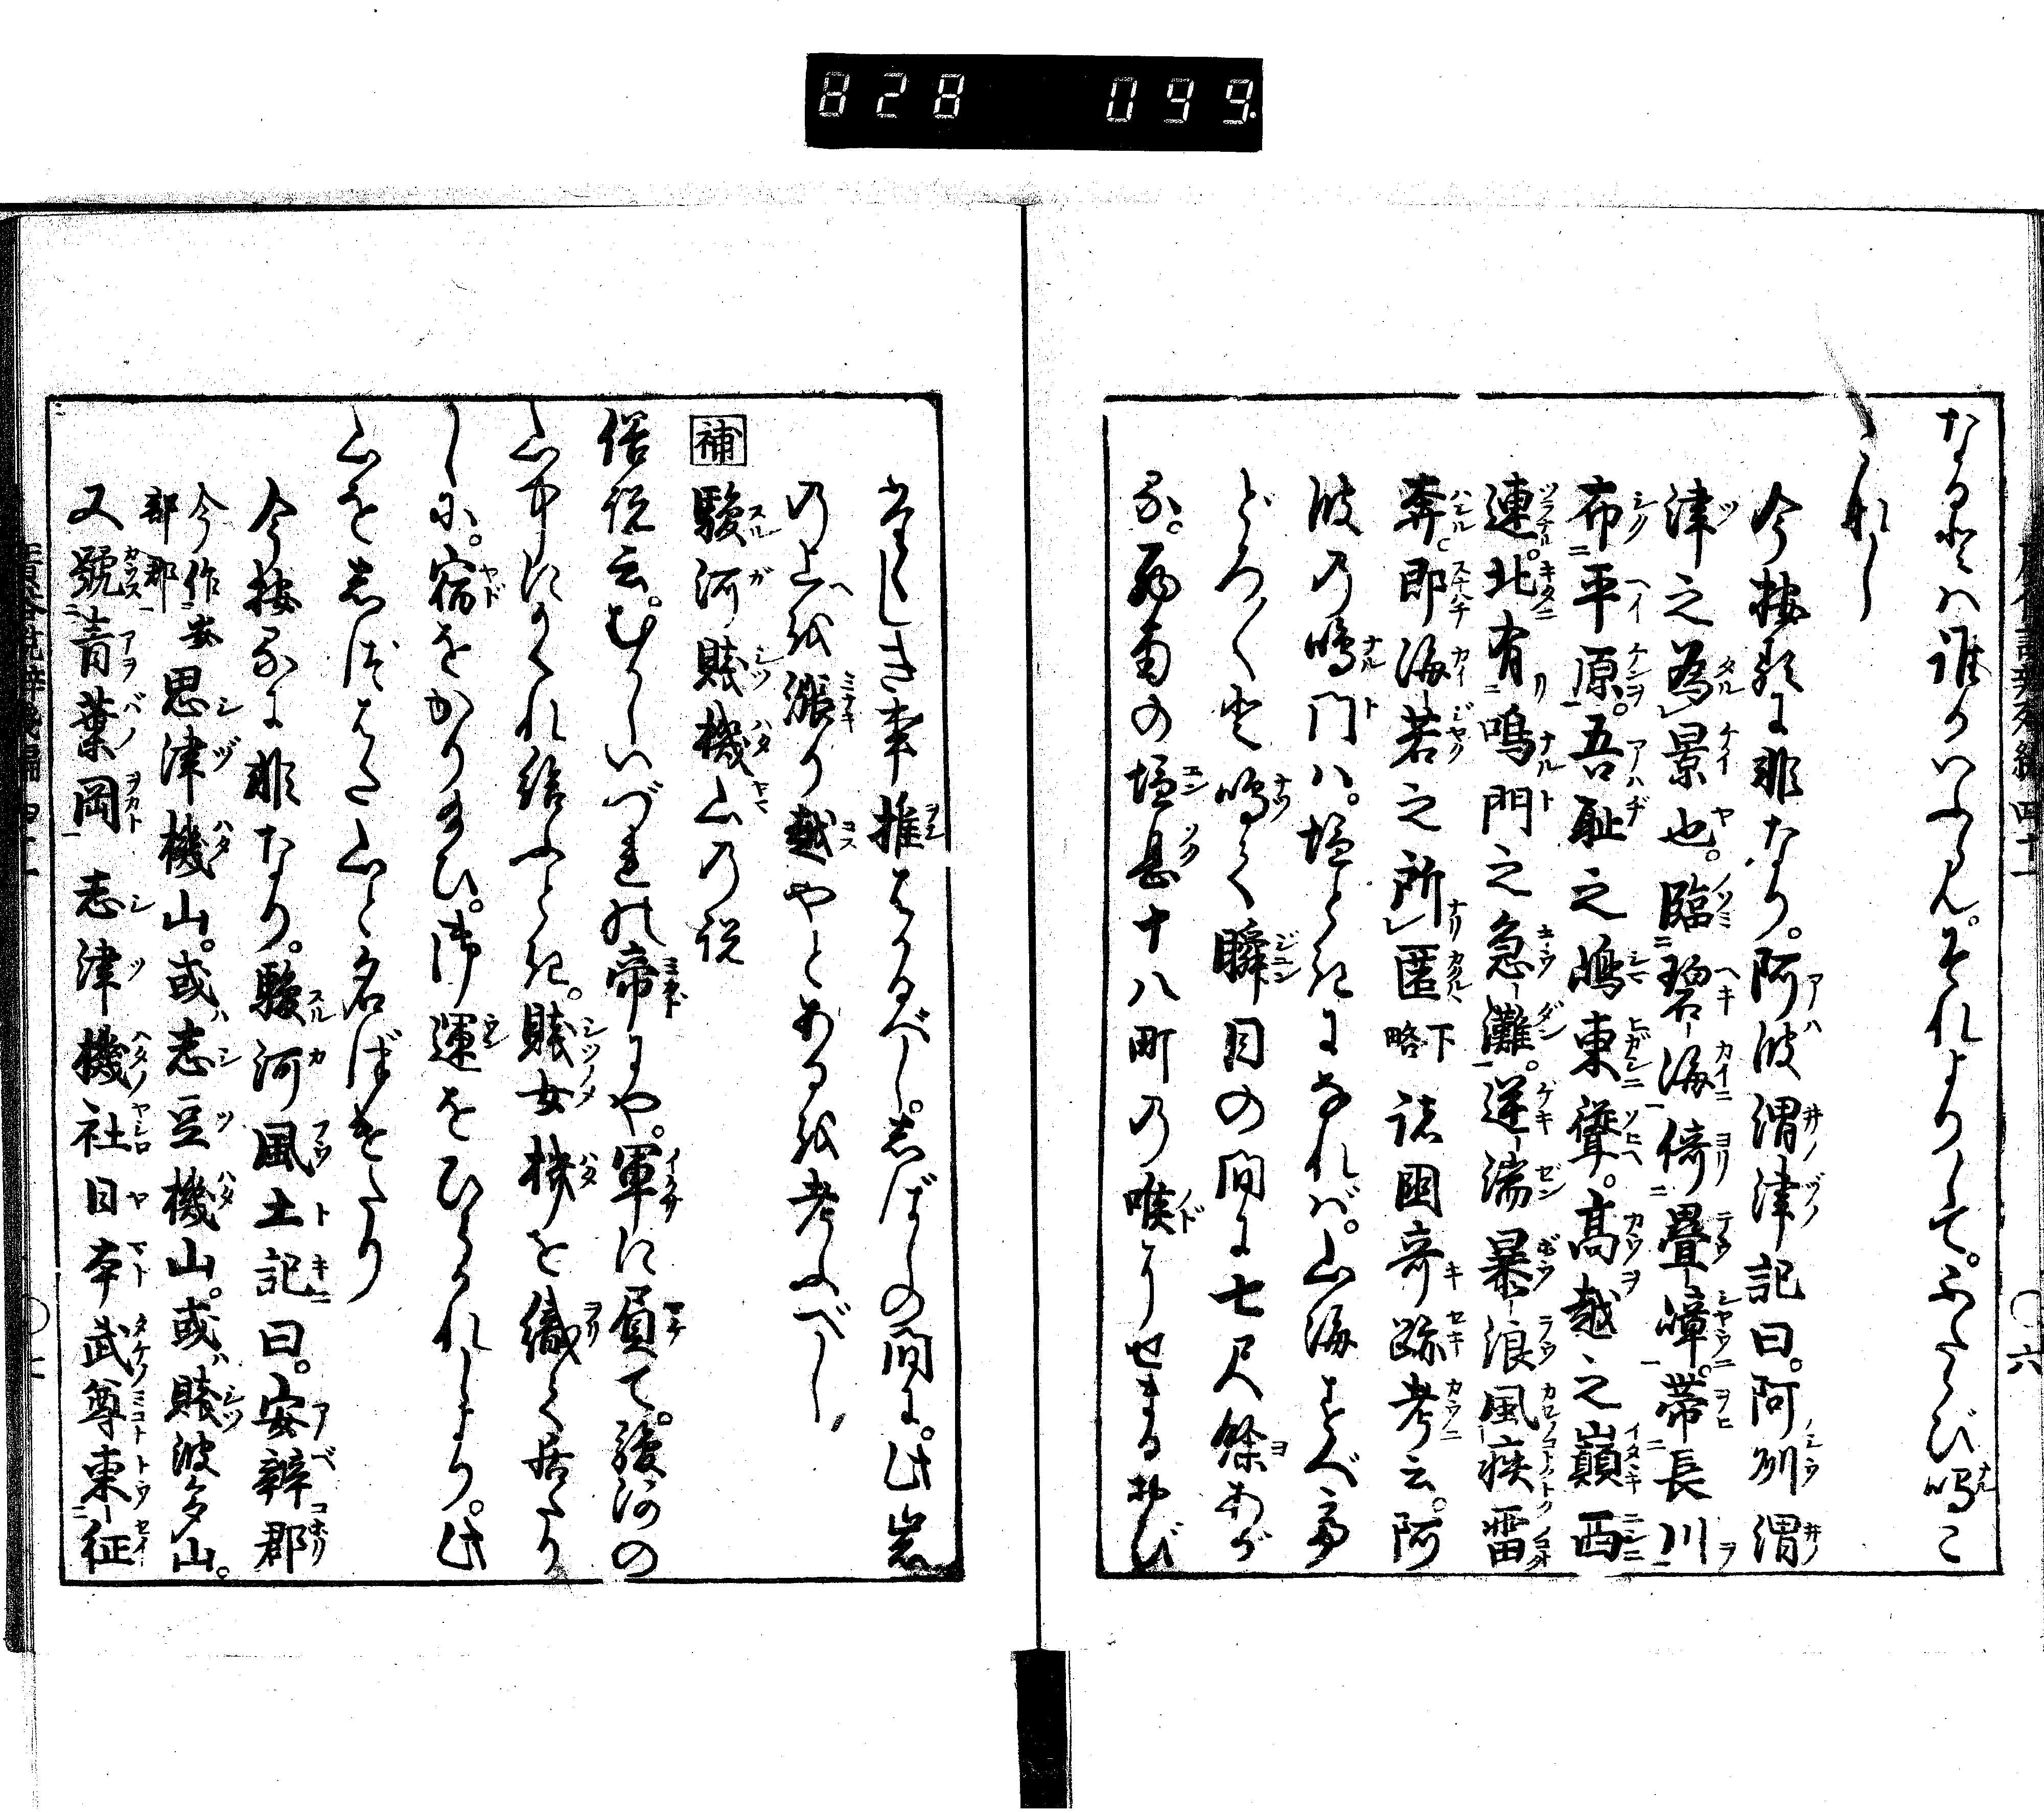 828 099.
なる門ハ誰かいふらん。それよりして。ふたゝび鳴こ
となし
今按るに非なり。阿波渭津記曰。阿州渭
津之為景也。臨碧海倚畳嶂。帯長川
布平原。吾耻之嶋東聳。高越之巓西
連。北有鳴門之急灘。逆湍暴浪風疾雷
奔。即海若之所匿下略諸国奇跡考云。阿
波の鳴門ハ。塩ときになれバ。山海すべて
どろ〳〵と鳴て瞬目の間に七尺餘あが
る。
の塩
十八町の喉にせまる
おびたゝしき事推はかるべし。しばしの間に。此岩
の上を漲り越やとあるを考ふべし
補 駿河賤機山の説
俗説云。むかしいづれの帝にや。軍に負て。駿河の
山中にかくれ給ふとき。賤女機を織て居たり
しに。宿をかり給ひ。御運をひらかれしより。此
山をしづはた山と名づけたり
今按るに非なり。駿河風土記曰。安辨郡
今作安部郡 思津機山。或ハ志豆機山。或ハ賤波多山。
又號青葉岡 志津機社日本武尊東征
六